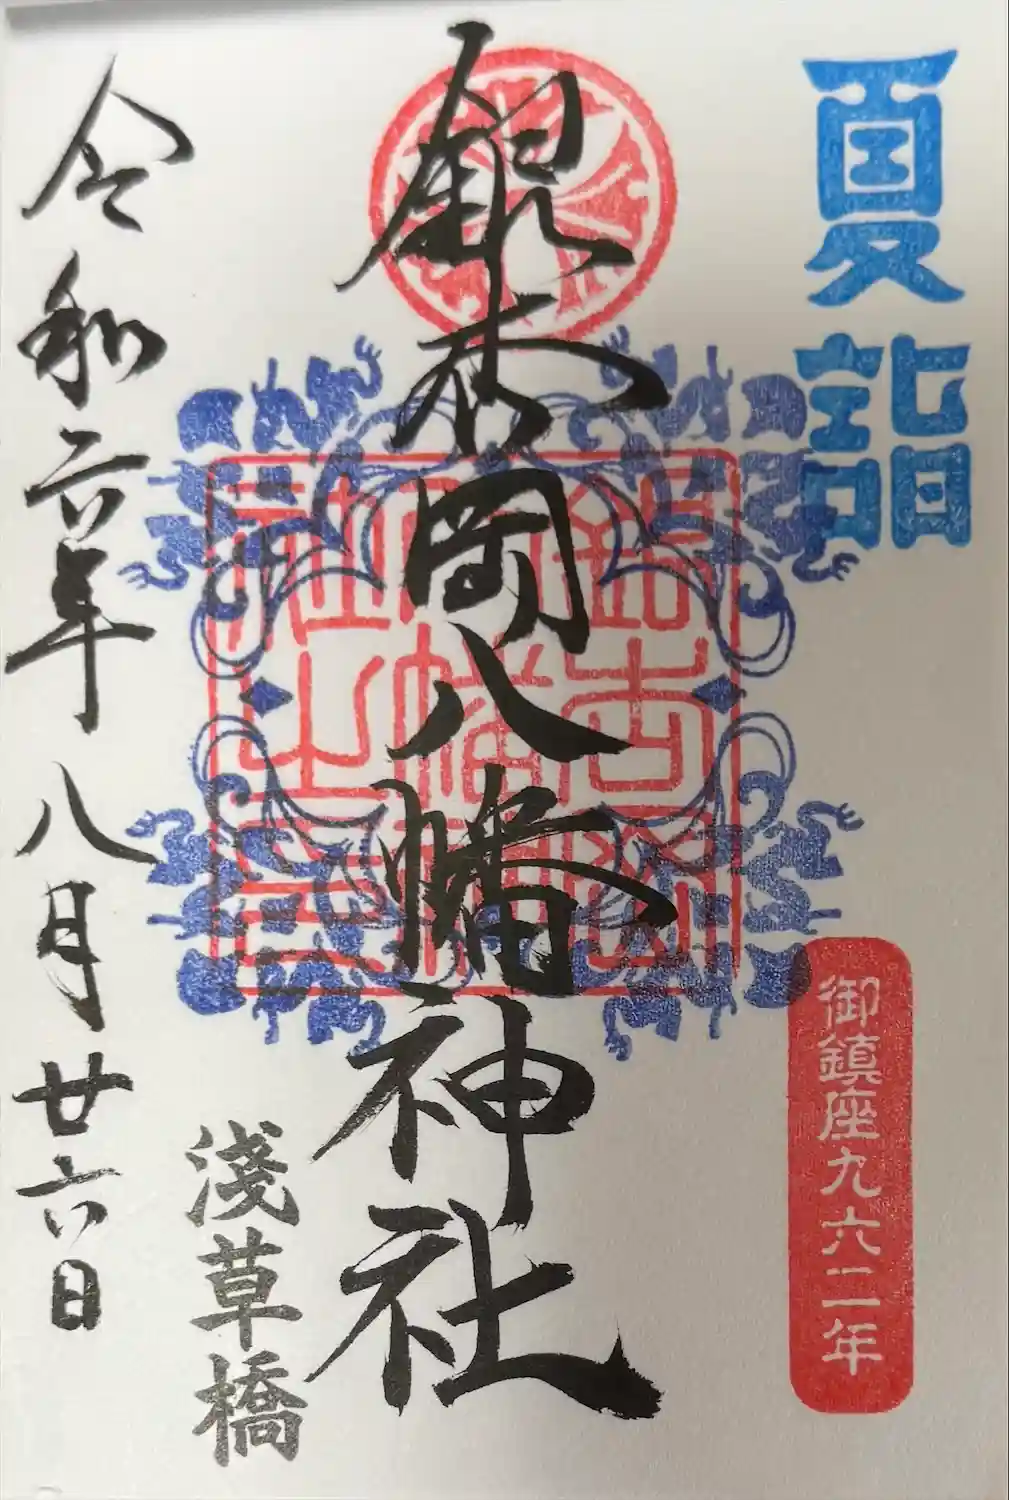 夏詣
御鎮座九六二年
銀杏岡八幡神社
銀杏岡
八幡神
社之印
淺草橋
令和六年八月廿六日